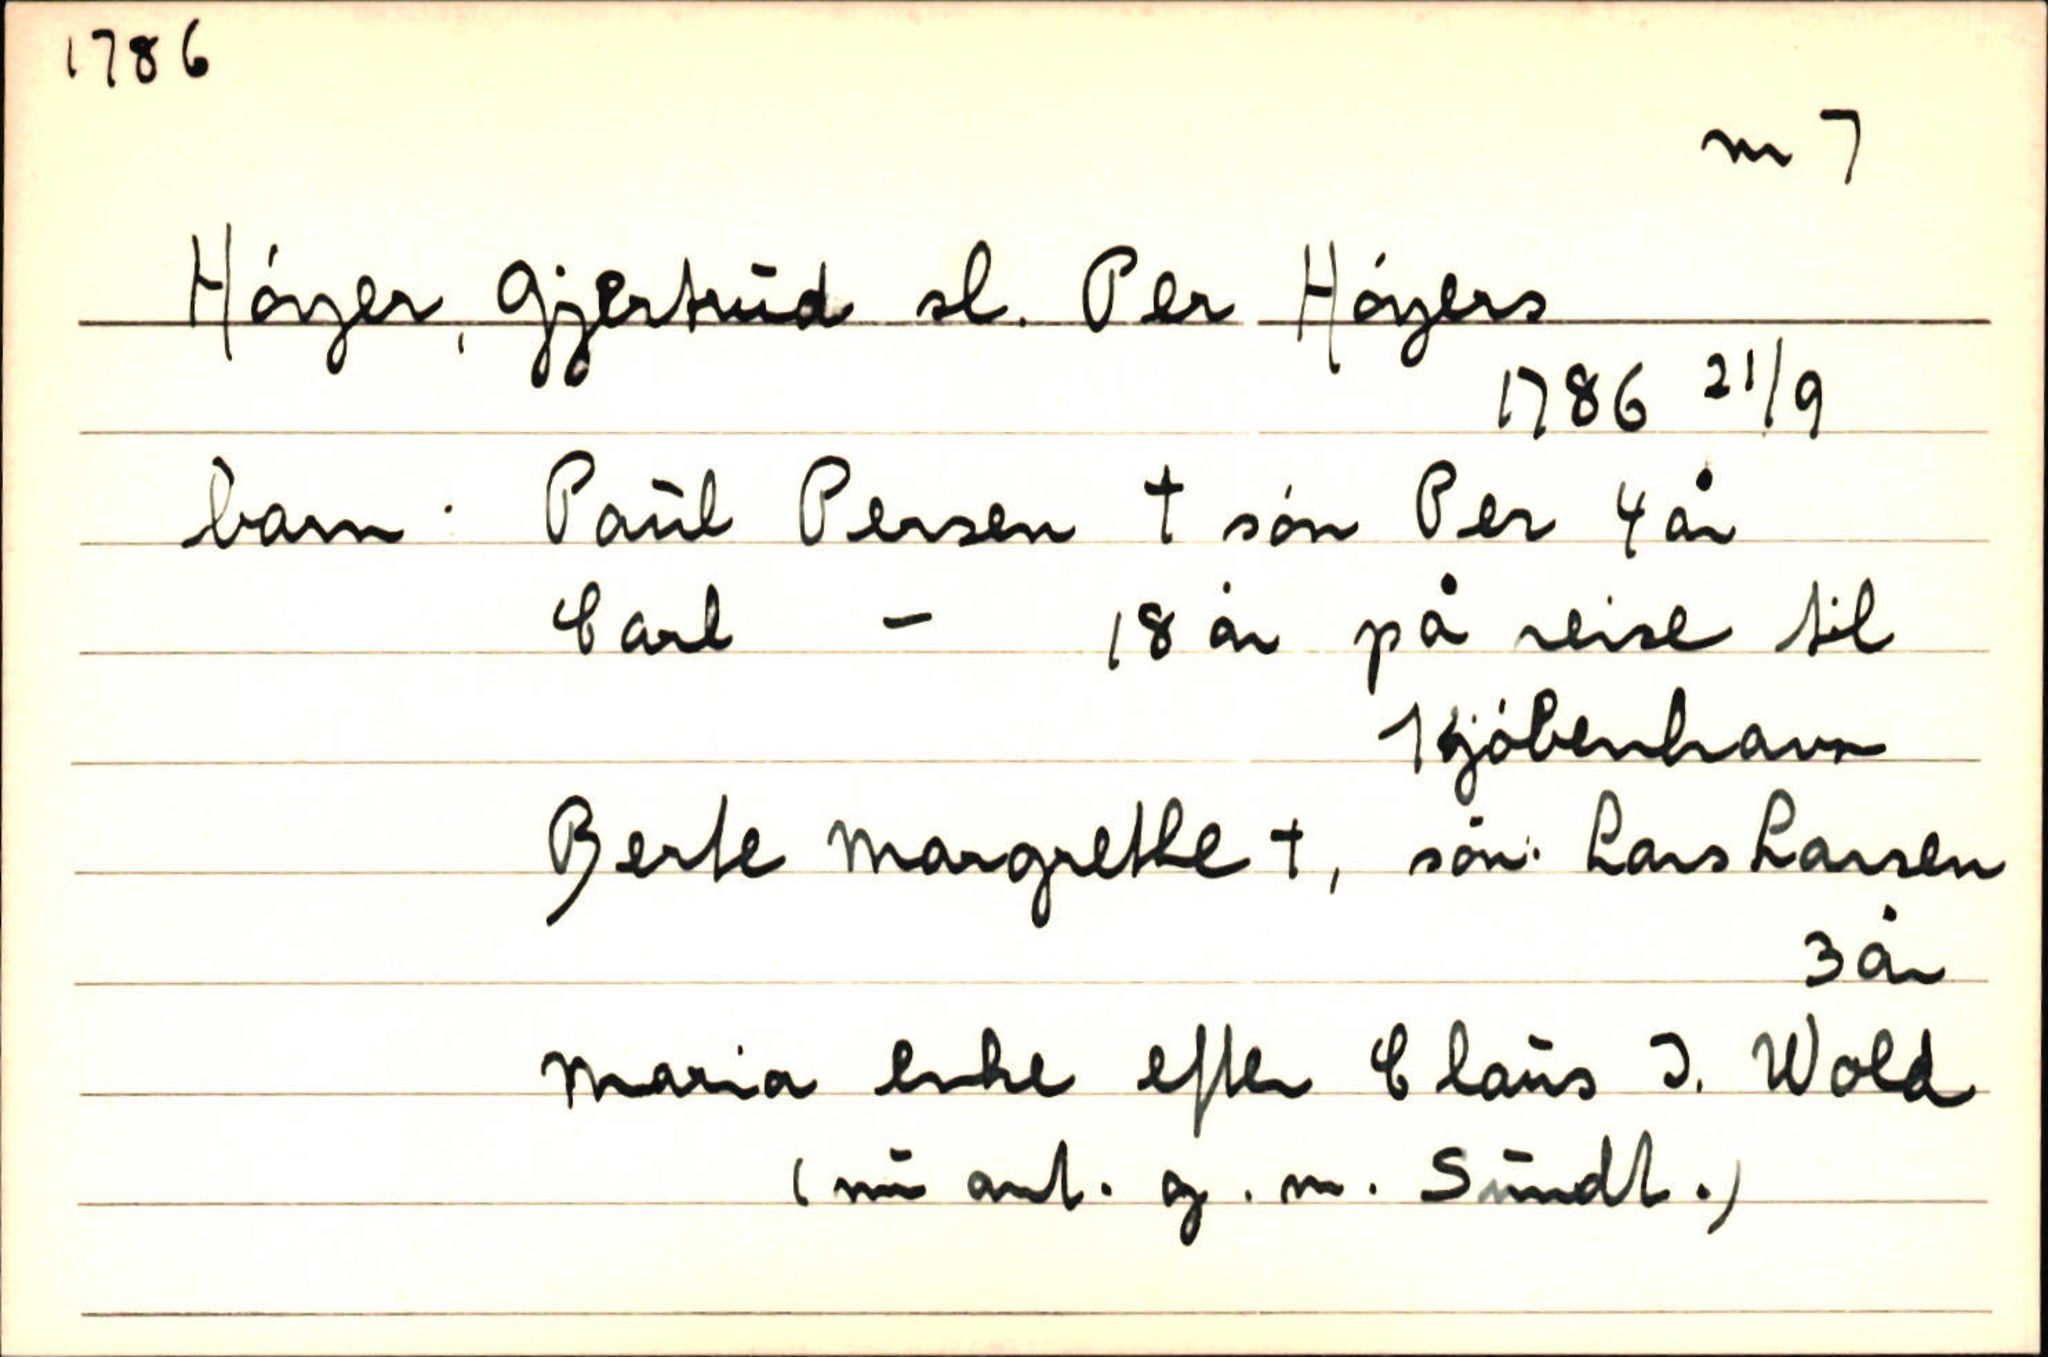 1786
nr 7
Höyer, Gjertrud sl. Per Höyers
1786 21/9
barn: Paul Persen † sön Per 4 år
Carl - 18 år på reise til
Kjöbenhavn
Berte Margrethe †, sön: Lars Larsen
3 år
Maria enke efter Claus J. Wold
(nu ant. g. m. Sundt.)